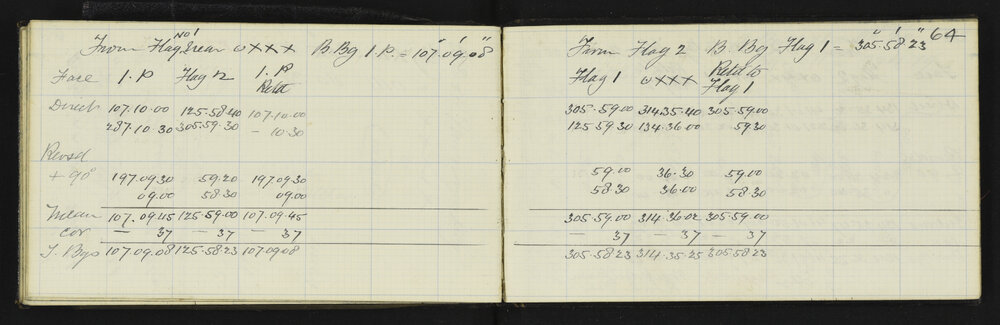 From Flag No 1 near wxxx B. Bg I.P. = 107°.09'.08"
Face I.P Flag 2 I.P
Retd
Direct 107.10.00 125.58.40 107.10.00
287.10.30 305.59.30 — 10.30
Revsd
+ 90° 197.09.30 59.20 197.09.30
09.00 58.30 09.00
Mean 107.09.45 125.59.00 107.09.45
cor — 37 — 37 — 37
T. Bgs 107.09.08 125.58.23 107.09.08
64
From Flag 2 B. Bg Flag 1 = 305°.58'.23"
Flag 1 wxxx Retd to
Flag 1
305.59.00 314.35.40 305.59.00
125.59.30 134.36.00 59.30
59.00 36.30 59.00
58.30 36.00 58.30
305.59.00 314.36.02 305.59.00
— 37 — 37 — 37
305.58.23 314.35.25 305.58.23